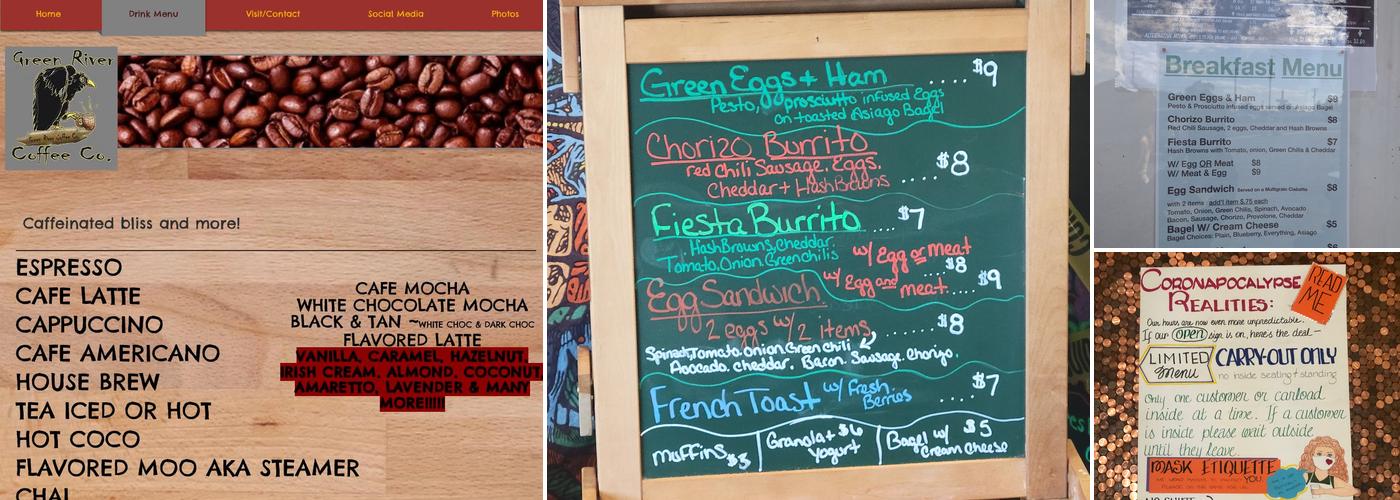 Home
Drink Menu
Visit/Contact
Social Media
Photos
Green River
Coffee Co.
Caffeinated bliss and more!
ESPRESSO
CAFE LATTE
CAPPUCCINO
CAFE AMERICANO
HOUSE BREW
TEA ICED OR HOT
HOT COCO
FLAVORED MOO AKA STEAMER
CHAI
CAFE MOCHA
WHITE CHOCOLATE MOCHA
BLACK & TAN ~WHITE CHOC & DARK CHOC
FLAVORED LATTE
VANILLA, CARAMEL, HAZELNUT,
IRISH CREAM, ALMOND, COCONUT,
AMARETTO, LAVENDER & MANY
MORE!!!!!
Green Eggs + Ham ..... $9
Pesto, prosciutto infused Eggs
on toasted Asiago Bagel
Chorizo Burrito
red Chili Sausage, Eggs, $8
Cheddar + HashBrowns .....
Fiesta Burrito .... $7
HashBrowns, Cheddar,
Tomato, Onion, Greenchilis
w/ Egg or meat
... $8
w/ Egg and meat.... $9
Egg Sandwich
2 eggs w/ 2 items .... $8
Spinach, Tomato, Onion, Green chili
Avocado, cheddar, Bacon, Sausage, Chorizo,
French Toast w/ Fresh Berries .... $7
muffins $3
Granola + $6
Yogurt
Bagel w/ $5
Cream Cheese
Breakfast Menu
Green Eggs & Ham $9
Pesto & Prosciutto infused eggs served on Asiago Bagel
Chorizo Burrito $8
Red Chili Sausage, 2 eggs, Cheddar and Hash Browns
Fiesta Burrito $7
Hash Browns with Tomato, onion, Green Chilis & Cheddar
W/ Egg OR Meat $8
W/ Meat & Egg $9
Egg Sandwich Served on a Multigrain Ciabatta $8
with 2 items add'l item $.75 each
Tomato, Onion, Green Chilis, Spinach, Avocado
Bacon, Sausage, Chorizo, Provolone, Cheddar
Bagel W/ Cream Cheese $5
Bagel Choices: Plain, Blueberry, Everything, Asiago
CORONAPOCALYPSE
REALITIES:
READ
ME
Our hours are now even more unpredictable.
If our open sign is on, here's the deal—
LIMITED
menu
CARRY-OUT ONLY
no inside seating + standing
Only one customer or carload
inside at a time. If a customer
is inside please wait outside
until they leave.
MASK ETIQUETTE